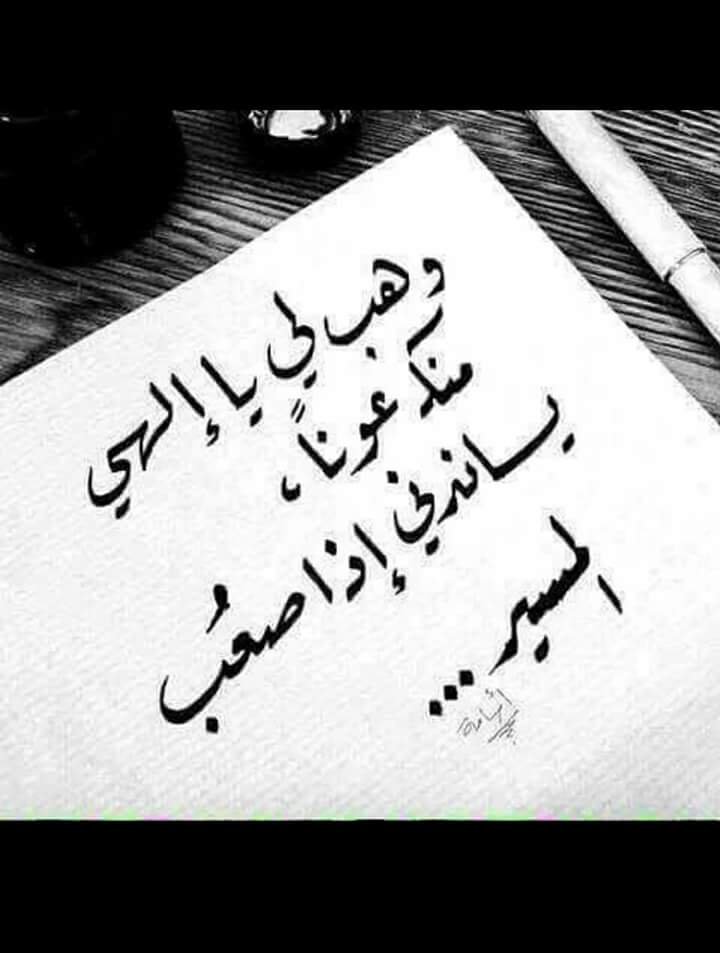 وهب لي يا إلهي
منك عوناً،
يساندني إذا صعُب
المسير...
أسامة